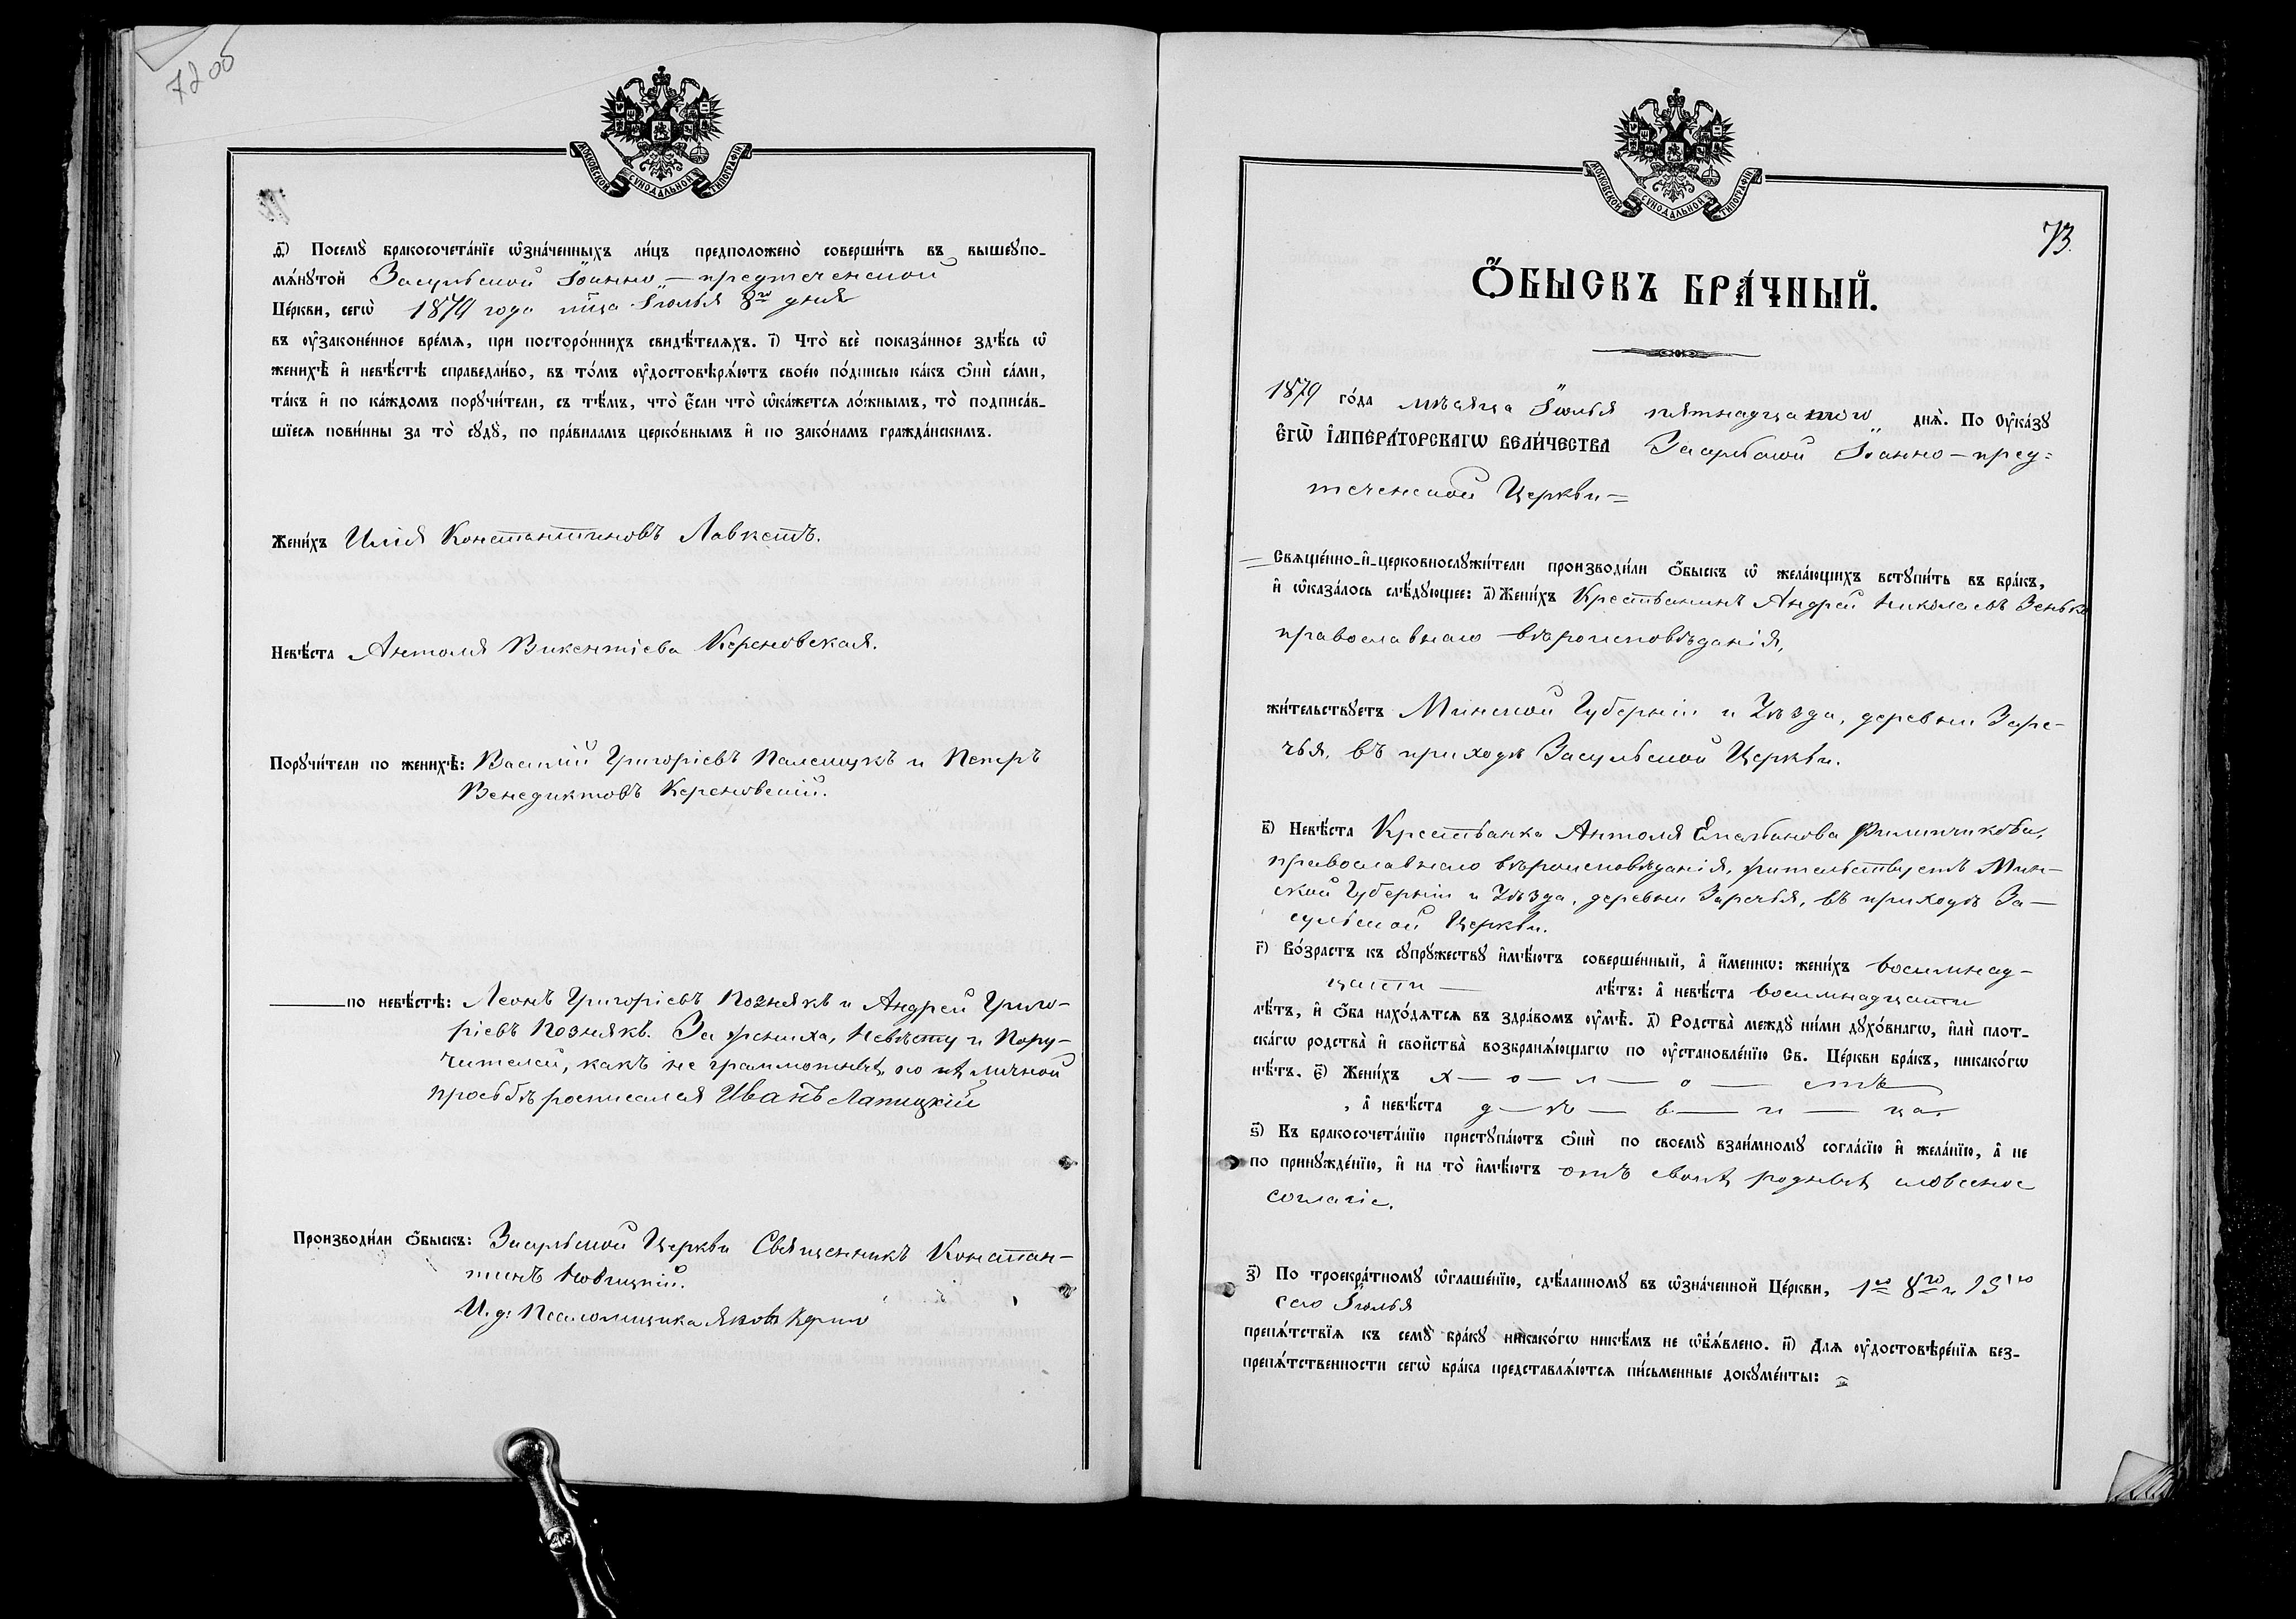 72 об
МОСКОВСКОЙ СѴНОДАЛЬНОЙ ТИПОГРАФІИ
д҃) Посемꙋ̀ бракосочета́нїе ѡ҆зна́ченныхъ ли́цъ предположено̀ соверши́ть въ вышеꙋпо-
мѧ́нꙋтой Засульской Іоанно-предтеченской
Це́ркви, сегѡ̀ 1879 года мѣца Іюлья 8го дня
въ ᲂу҆законе́нное вре́мѧ, при посторо́ннихъ свидѣ́телѧхъ. і҃) Что̀ всѐ показа́нное здѣ́сь ѡ҆
женихѣ̀ и҆ невѣ́стѣ справедли́во, въ то́мъ ᲂу҆достовѣрѧ́ютъ свое́ю по́дписью ка́къ ѻ҆нѝ са́ми,
та́къ и҆ по ка́ждомъ порꙋчи́тели, съ тѣ́мъ, что̀ є҆́сли что̀ ѡ҆ка́жетсѧ ло́жнымъ, то̀ подписа́в-
шїесѧ пови́нны за то̀ сꙋдꙋ̀, по пра́виламъ церко́внымъ и҆ по зако́намъ гражда́нскимъ.
Жени́хъ Илія Константиновъ Лавкетъ.
Невѣ́ста Антоля Викентіева Кереновская.
Порꙋчи́тели по женихѣ̀: Василій Григоріевъ Палещукъ и Петръ
Венедиктовъ Кереновскій.
по невѣ́стѣ: Леонъ Григоріевъ Познякъ и Андрей Григо-
ріевъ Познякъ. За жениха, невѣсту и Пору-
чителей, какъ не грамотныхъ, по ихъ личной
просьбѣ росписался Иванъ Лапицкій
Производи́ли ѻ҆́быскъ: Засульской Церкви Священникъ Констан-
тинъ Новицкій.
И. д. Псаломщика Яковъ
МОСКОВСКОЙ СѴНОДАЛЬНОЙ ТИПОГРАФІИ
73.
Ѻ҆́БЫСКЪ БРА́ЧНЫЙ.
1879 го́да мѣсяца Іюлья пятнадцатого днѧ̀. По ᲂу҆ка́зꙋ
Є҆ГѠ̀ І҆МПЕРА́ТОРСКАГѠ ВЕЛИ́ЧЕСТВА Засульской Іоанно-пред-
теченской Церкви
Свѧще́нно-и҆-церковнослꙋжи́тели производи́ли ѻ҆́быскъ ѡ҆ жела́ющихъ встꙋпи́ть въ бра́къ,
и҆ ѡ҆каза́лось слѣ́дꙋющее: а҃) Жени́хъ Крестьянинъ Андрей Николаевъ Зенько
православнаго вѣроисповѣданія,
жи́тельствꙋетъ Минской Губерніи и Уѣзда, деревни Заре-
чья, въ приходѣ Засульской Церкви.
в҃) Невѣ́ста Крестьянка Антоля Емельянова Филипчикова,
православнаго вѣроисповѣданія, жительствуетъ Мин-
ской Губерніи и Уѣзда, деревни Заречья, въ приходѣ За-
сульской Церкви.
г҃) Во́зрастъ къ сꙋпрꙋ́жествꙋ и҆мѣ́ютъ соверше́нный, а҆ и҆́меннѡ: жени́хъ восимнад-
цати лѣ́тъ: а҆ невѣ́ста восимнадцати
лѣ́тъ, и҆ ѻ҆́ба нахо́дѧтсѧ въ здра́вомъ ᲂу҆мѣ̀. д҃) Родства̀ междꙋ̀ ни́ми дꙋхо́внагѡ, и҆лѝ плот-
ска́гѡ родства̀ и҆ сво́йства̀ возбранѧ́ющагѡ по ᲂу҆становле́нїю Св. Це́ркви бра́къ, никако́гѡ
нѣ́тъ. є҃) Жени́хъ х — о — л — о — стъ
, а҆ невѣ́ста д — ѣ — в — и — ца.
ѕ҃) Къ бракосочета́нїю пристꙋпа́ютъ ѻ҆нѝ по своемꙋ̀ взаи́мномꙋ согла́сїю и҆ жела́нїю, а҆ не
по принꙋжде́нїю, и҆ на то̀ и҆мѣ́ютъ отъ своихъ родныхъ словесное
согласіе.
з҃) По троекра́тномꙋ ѡ҆глаше́нїю, сдѣ́ланномꙋ въ ѡ҆зна́ченной Це́ркви, 1го 8го и 15го
сего Іюлья
препѧ́тствїѧ къ семꙋ̀ бра́кꙋ никако́гѡ никѣ́мъ не ѡ҆бъѧ́влено. и҃) Длѧ ᲂу҆достовѣре́нїѧ без-
препѧ́тственности сегѡ̀ бра́ка представлѧ́ютсѧ пи́сьменные докꙋме́нты: